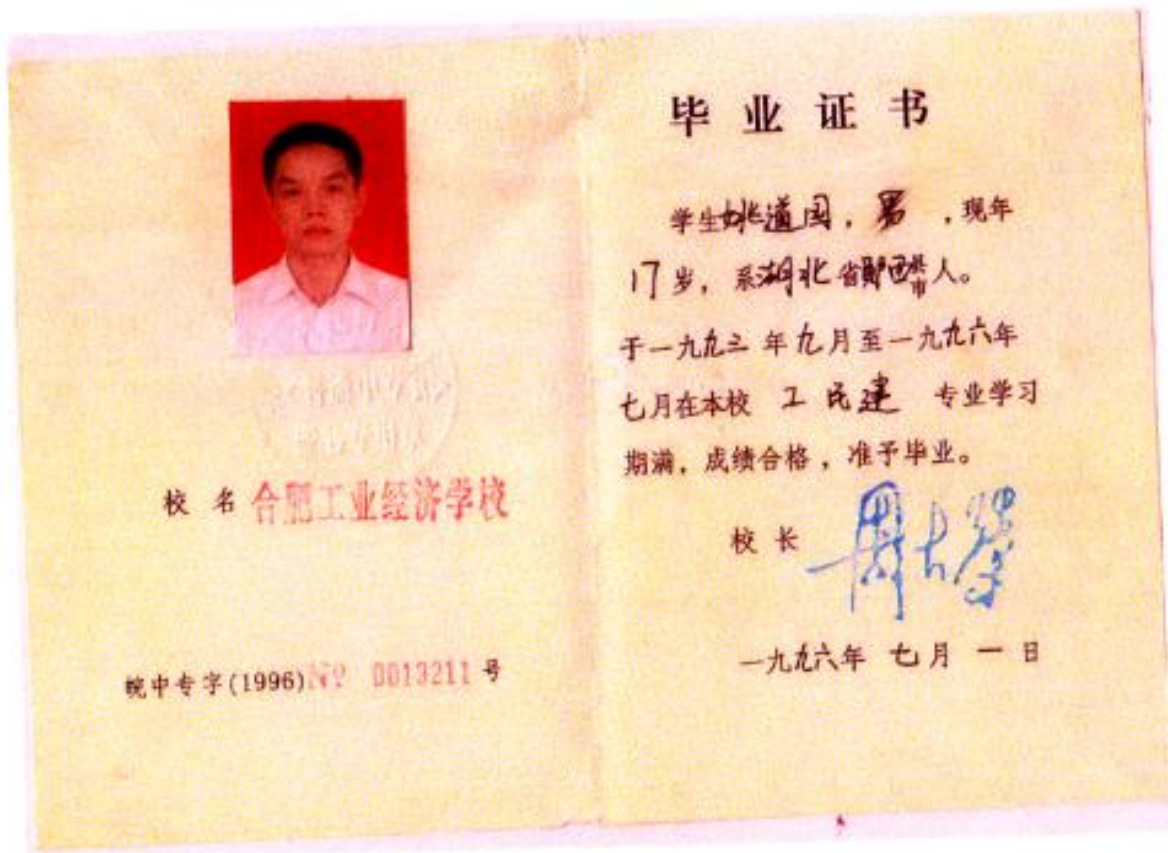 校 名 合肥工业经济学校
皖中专字(1996)№ 0013211 号
毕 业 证 书
学生姚道国，男，现年
17岁，系湖北省郧西县市人。
于一九九三年九月至一九九六年
七月在本校 工民建 专业学习
期满，成绩合格，准予毕业。
校 长
一九九六年 七月 一日